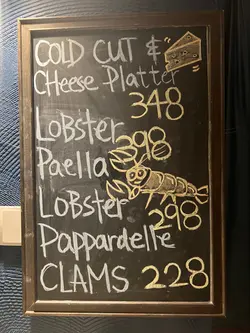 COLD CUT &
CHeese Platter
348
LoBster 398
Paella
LoBster 298
Pappardelle
CLAMS 228